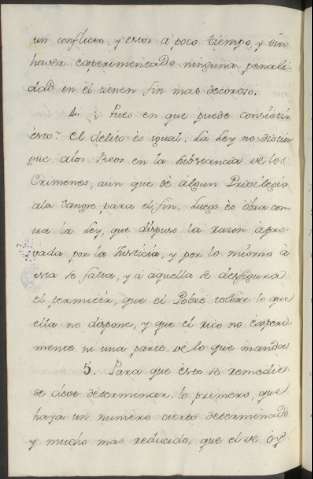 un conflicto, y estos a poco tiempo, y sin
haver experimentado ninguna penali
dad en él tienen fin mas decoroso.
4. ¿Pues en que puede consistir
esto? El delito es igual: La Ley no distin
gue alos Reos en la substancia de los
Crimenes, aun que dé algun Privilegio
ala sangre para el fin. Luego es obra con
tra la Ley, que dispuso la razon apro
vada por la Justicia, y por lo mismo à
esta se falta, y á aquella se desfigura
el permitir, que el Pobre tolere lo que
ella no dispone, y que el rico no experi
mente ni una parte de lo que manda.
5. Para que esto se remedie
se deve determinar lo primero, que
haya un numero cierto determinado
y mucho mas reducido, que el de oy